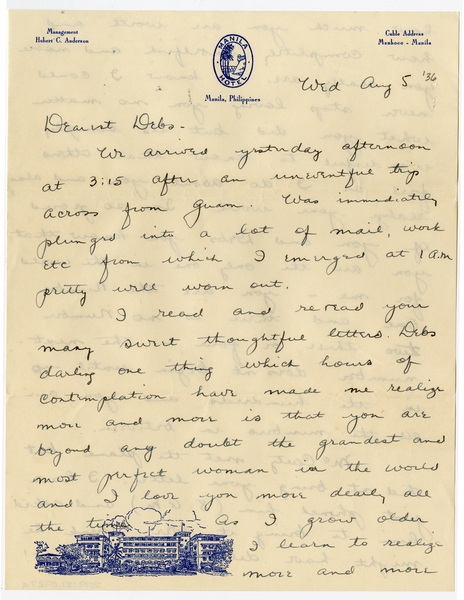 Management
Hubert C. Anderson
MANILA
HOTEL
Manila, Philippines
Cable Address
Manhoco - Manila
Wed Aug 5 '36
Dearest Debs -
We arrived yesterday afternoon
at 3:15 after an uneventful trip
across from Guam. Was immediately
plunged into a lot of mail, work
etc from which I emerged at 1 a.m
pretty well worn out.
I read and reread your
many sweet thoughtful letters. Debs
darling one thing which hours of
contemplation have made me realize
more and more is that you are
beyond any doubt the grandest and
most perfect woman in the world
and I love you more dearly all
the time. As I grow older
I learn to realize
more and more